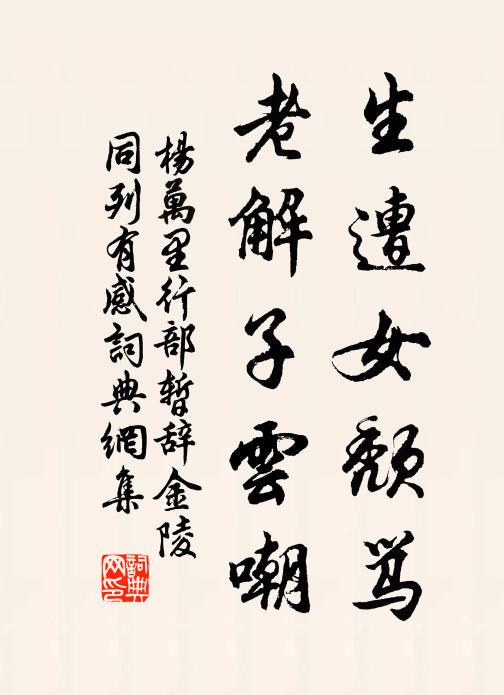 生遭女颓骂
老解子雲嘲
楊萬里行部暫辞金陵
同列有感詞典網集
詞典
网印